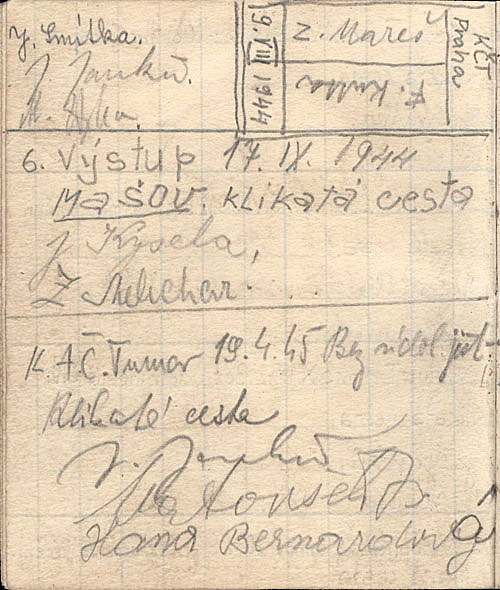 J. Smítka.
J Janků.
KČT
Praha
Z. Mareš
9. VII 1944
6. Výstup 17. IX. 1944
MAŠOV. Klikatá cesta
J Kysela,
Z Melichar.
K A.Č. Turnov 19.4.45 Bez
Klikatá cesta
J. Janků
Hana Bernardová